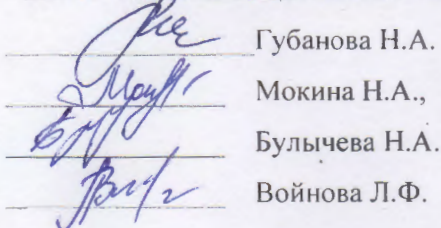 Губанова Н.А.
Мокина Н.А.,
Булычева Н.А.
Войнова Л.Ф.